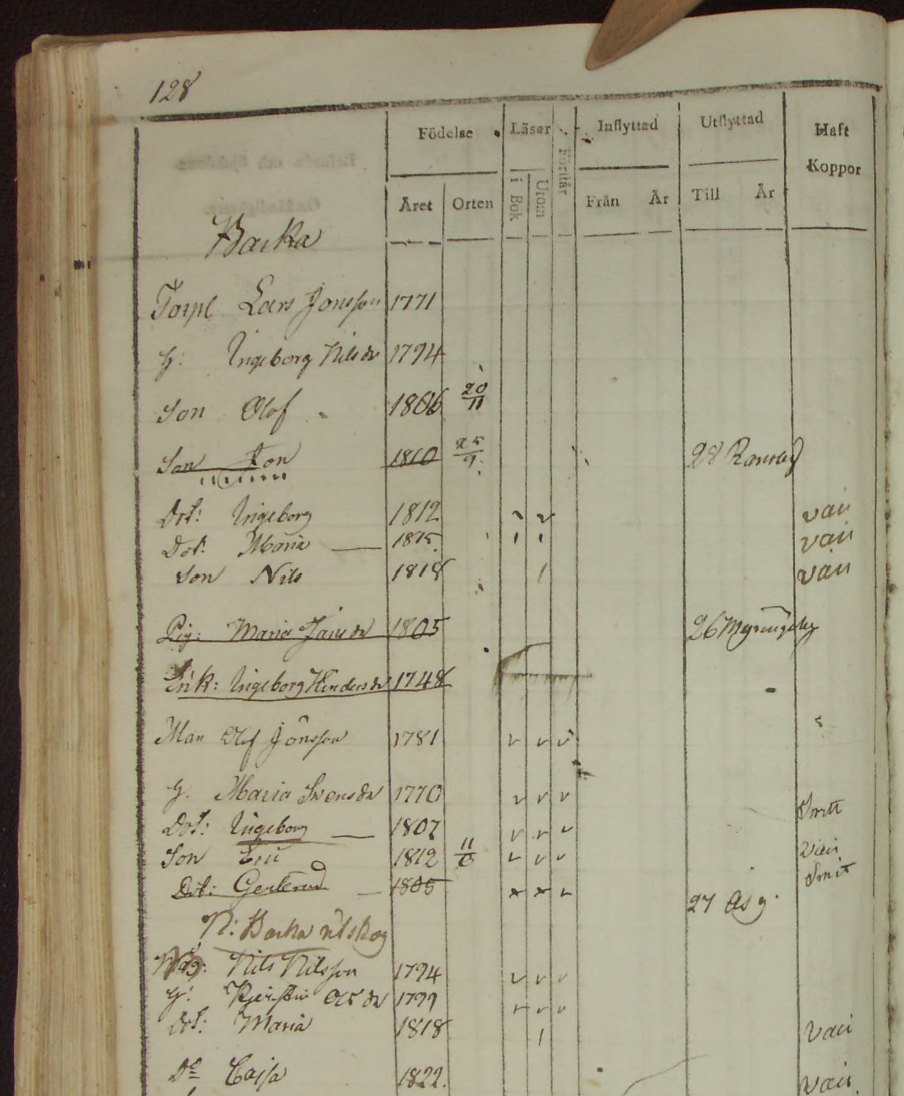 128
Födelse Läser Förstår Inflyttad Utflyttad Haft Koppor
Året Orten i Bok Utom Från År Till År
Backa
Torpl Lars Jonsson 1771
G: Ingeborg Nilsdr 1794
Son Olof 1806 20/11
Son Jon 1810 25/9 28
Dot: Ingeborg 1812 vaci
Dot: Maria 1815 vaci
Son Nils 1818 vaci
Pig: Maria Jansdr 1805 26
Enk: Ingeborg Hindersdr 1748
Man Olof Jönsson 1781
G. Maria Svensdr 1770
Dot: Ingeborg 1807
Son 1812 vaci
Dot: Gertrud 1805 27
N: Backa utskog
Nils Nilsson 1794
G: Kjerstin Olsdr 1799
Dot: Maria 1818 vaci
Do Cajsa 1822. vaci